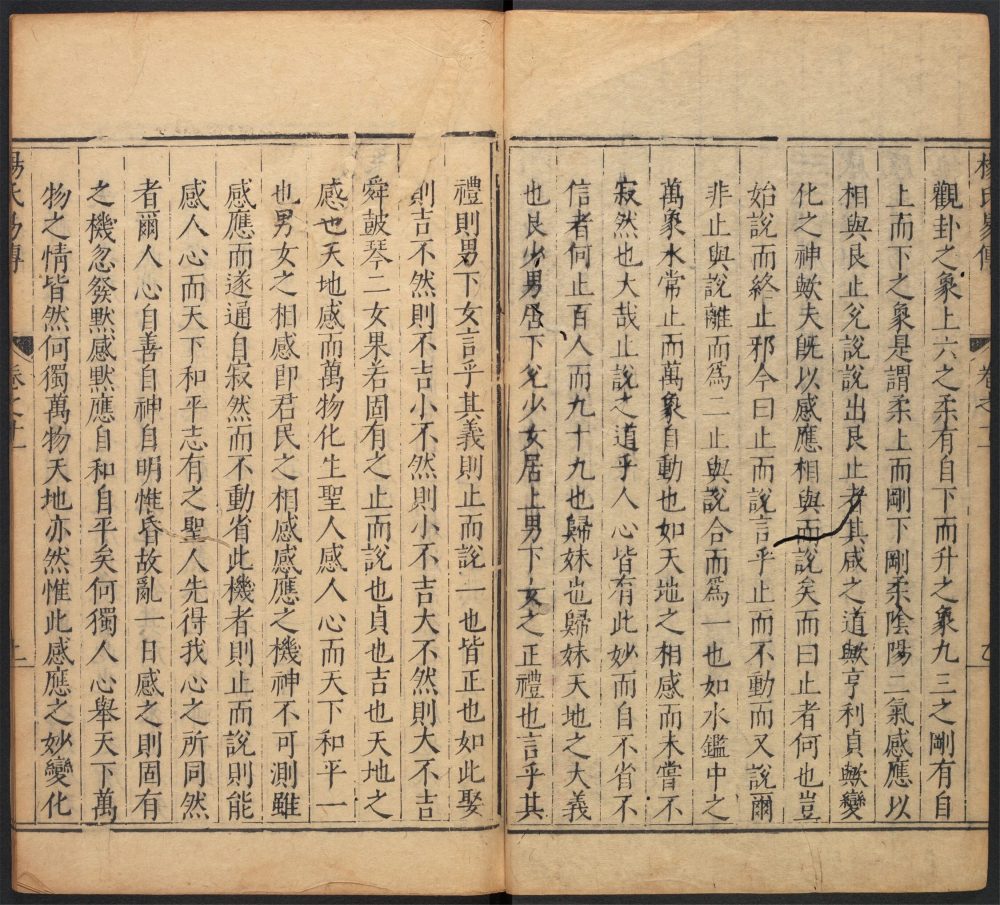 楊氏易傳
卷之十一
觀卦之象上六之柔有自下而升之象九三之剛有自
上而下之象是謂柔上而剛下剛柔陰陽二氣感應以
相與艮止兌說說出艮止者其咸之道歟亨利貞歟變
化之神歟夫旣以感應相與而說矣而曰止者何也豈
始說而終止邪今曰止而說言乎止而不動而又說爾
非止與說離而爲二止與說合而爲一也如水鑑中之
萬象水常止而萬象自動也如天地之相感而未嘗不
寂然也大哉止說之道乎人心皆有此妙而自不省不
信者何止百人而九十九也歸妹也歸妹天地之大義
也艮少男居下兌少女居上男下女之正禮也言乎其
禮則男下女言乎其義則止而說一也皆正也如此娶
則吉不然則不吉小不然則小不吉大不然則大不吉
舜皷琴二女果若固有之止而說也貞也吉也天地之
感也天地感而萬物化生聖人感人心而天下和平一
也男女之相感卽君民之相感感應之機神不可測雖
感應而遂通自寂然而不動省此機者則止而說則能
感人心而天下和平志有之聖人先得我心之所同然
者爾人心自善自神自明惟昏故亂一日感之則固有
之機忽發黙感黙應自和自平矣何獨人心舉天下萬
物之情皆然何獨萬物天地亦然惟此感應之妙變化
楊氏易傳
卷之十一